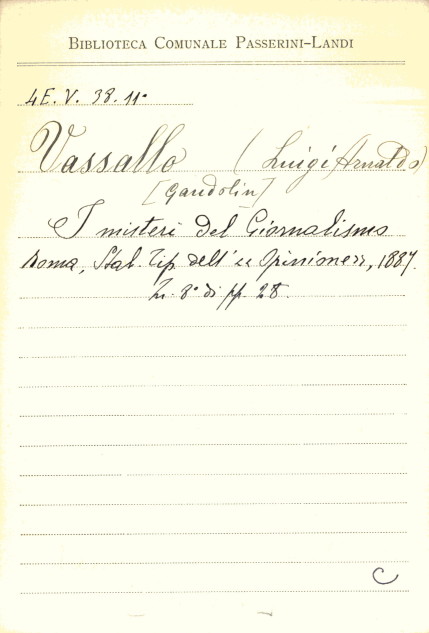 BIBLIOTECA COMUNALE PASSERINI-LANDI
4E. V. 38. 11°
Vassallo (Luigi Arnaldo)
[Gandolin]
I misteri del Giornalismo
Roma, Stab. Tip. dell' « Opinione», 1887.
In 8° di pp. 28.
C